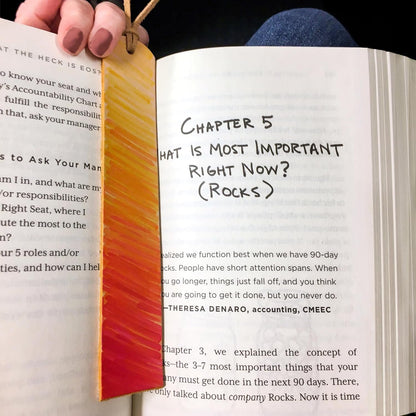 AT THE HECK IS EOS
to know your seat and
y's Accountability Chart
fulfill the responsibili
n that, ask your manager
s to Ask Your Man
am I in, and what are m
/or responsibilities?
Right Seat, where I
ute the most to the
n?
ur 5 roles and/or
ties, and how can I hel
CHAPTER 5
HAT IS MOST IMPORTANT
RIGHT NOW?
(ROCKS)
ealized we function best when we have 90-day
ocks. People have short attention spans. When
ou go longer, things just fall off, and you think
ou are going to get it done, but you never do.
—THERESA DENARO, accounting, CMEEC
Chapter 3, we explained the concept of
ks—the 3–7 most important things that your
any must get done in the next 90 days. There,
e only talked about company Rocks. Now it is time